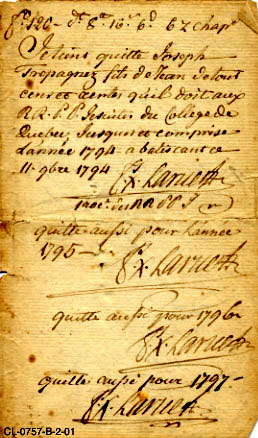 Je tiens quitte Joseph
Trepagnez fils de Jean de tout
cens et rentes qu'il doit aux
R.R. P.P. Jesuites du College de
Quebec, jusques et comprise
L'année 1794 a
11. 9bre 1794
Fx. Larue
quitte aussi pour L'année
1795 —
Fx. Larue
quitte aussi pour 1796
Fx. Larue
quitte aussi pour 1797 —
Fx. Larue
CL-0757-B-2-01